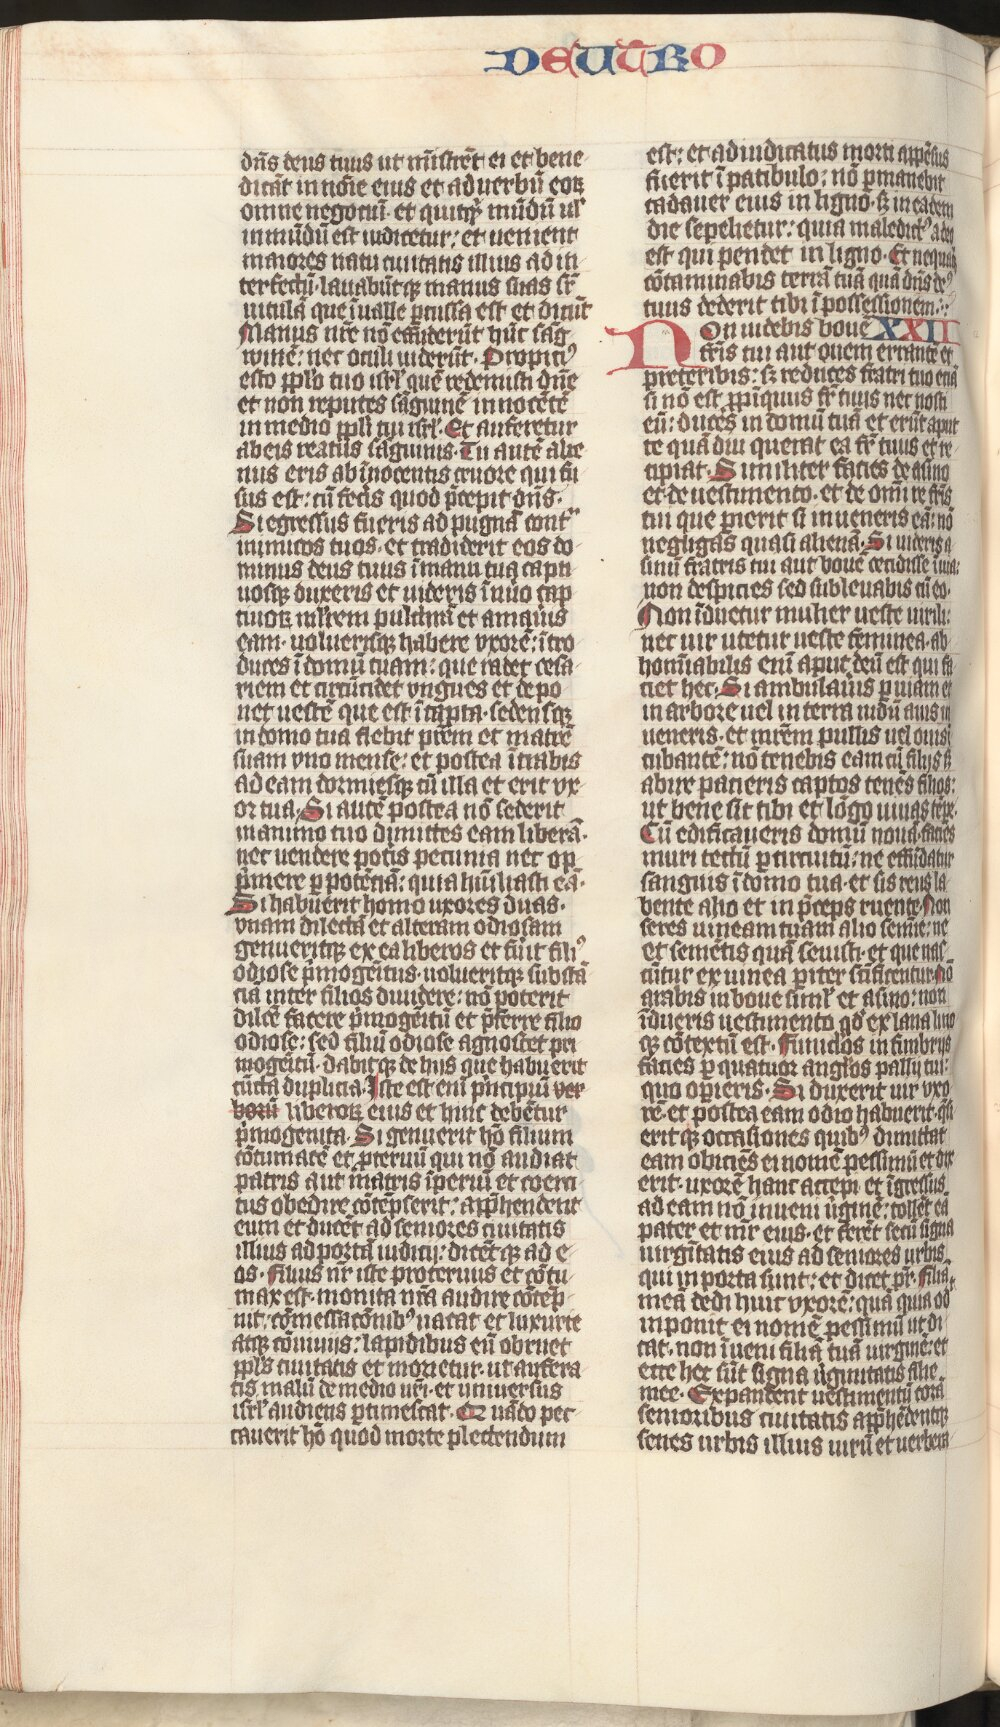 DEUTRO
dn̄s deus tuus ut mīstrēt ei et bene
dicāt in nōīe eius et ad uerbū eoꝝ
omne negotiū· et quitꝙ̄ mūdū ul̄
inmūdū est iudicetur: et uenient
maiores natu ciuitatis illius ad in
terfectū· lauabūtqꝫ manus suas sr̄
uitulā que ī ualle ꝑcussa est et dicūt
Manus nr̄e nō effuderūt hūc sāg
winē: nec oculi uiderūt· Propici⁹
esto ppl̄o tuo isrl̄ quē redemisti dn̄e
et non reputes sāguinē innocētē
in medio ppl̄i tui isrl̄· Et auferetur
ab eis reatus sāguinis· Tu autē alie
nus eris ab īnocentis cruore qui fu
sus est: cū fecīs quod p̄cepit dn̄s·
Si egressus fueris ad pugnā contᵃ
inimicos tuos· et tradiderit eos do
minus deus tuus ī manu tua capti
uosqꝫ duxeris et uideris ī nūo cap
tiuoꝝ ml̓rem pulc̄mā et amaūis
eam· uoluerisqꝫ habere vxorē: ītro
duces ī domū tuam: que radet cesa
riem et circūcidet vngues et depo
net uestē que est ī capta· sedensqꝫ
in domo tua flebit pr̄em et matrē
suam vno mense: et postea ītrabis
ad eam dormiesqꝫ cū illa et erit vx
or tua· Si autē postea nō sederit
in animo tuo dimittes eam liberā·
nec uendere potīs pecunia nec op
p̄mere ꝑ potēciā: quia hūiliasti eā·
Si habuerit homo uxores duas·
vnam dilectā et alteram odiosam
genueritqꝫ ex ea liberos et fūit fili⁹
odiose p̄mogēitus· uolueritqꝫ substā
ciā inter filios diuidere: nō poterit
dilcē facere p̄mogēitū et p̄ferre filio
odiose: sed filiū odiose agnoscet pri
mogēitū· dabitqꝫ de hijs que habuerit
cūcta duplicia· Iste est enī p̄ncipiū ver
borū liberoꝝ eius et huic debētur
p̄mogenita· Si genuerit hō filium
cōtumacē et ꝓteruū qui nō audiat
patris aut matris īperiū et coerci
tus obedire cōtēpserit: app̄hendent
eum et ducēt ad seniores ciuitatis
illius ad portā iudicij: dicētqꝫ ad e
os· Filius nr̄ iste proteruus et cōtu
max est· monita nr̄a audire cōtēp
nit: cōmessacōnib⁹ uacat et luxurie
atqꝫ cōuiuijs: lapidibus eū obruet
ppl̄s ciuitatis et morietur· ut aufera
tis malū de medio vr̄i· et uniuersus
isrl̄ audiens ꝑtimescat· Quādo pec
cauerit hō quod morte plectendum
est: et adiudicatus morti appēsus
fuerit ī patibulo: nō ꝑmanebit
cadauer eius in ligno· sꝫ in eadem
die sepelietur: quia maledict⁹ a deo
est qui pendet in ligno· Et nequaq̄
cōtaminabis terrā tuā quā dn̄s de⁹
tuus dederit tibi ī possessionem·
Non uidebis bouē XXII
fr̄is tui aut ouem errantē et
preteribis: sꝫ reduces fratri tuo eciā
si nō est ꝓpīquus fr̄ tuus nec nosti
eū: duces in domū tuā et erūt aput
te quā diu querat ea fr̄ tuus et re
cipiat· Similiter facies de asino
et de uestimento· et de omī re fr̄is
tui que ꝑierit si inueneris eā: nō
negligas quasi alienā· Si uideris a
sinū fratris tui aut bouē cecidisse ī uia:
non despicies sed subleuabis cū eo·
Non īduetur mulier ueste uirili:
nec uir utetur ueste feminea· ab
homīabilis enī aput deū est qui fa
ciet hec· Si ambulaūis ꝑ uiam et
in arbore uel in terra nidū auis in
ueneris· et mr̄em pullis uel ouis ī
cubantē: nō tenebis eam cū filijs sꝫ
abire pacieris captos tenēs filios:
ut bene sit tibi et lōgo uiuas tꝑe·
Cū edificaueris domū nouā· facies
muri tectū ꝑ circuitū: ne effūdatur
sanguis ī domo tua· et sis reus la
bente alio et in p̄ceps ruente· Non
seres uineam tuam alio semīe: ne
et semētis quā seuisti· et que nas
cūtur ex uinea ꝑiter scīficentur· Nō
arabis in boue siml̄ et asino: non
īdueris uestimento qd̓ ex lana lino
qꝫ cōtextū est· Funiclos in fimbrijs
facies ꝑ quatuor angl̓os pallij tui:
quo oꝑieris· Si duxerit uir vxo
rē· et postea eam odio habuerit· q̄si
eritqꝫ occasiones quib⁹ dimittat
eam obiciēs ei nomē pessimū et dix
erit· uxorē hanc accepi et īgressus
ad eam nō inueni ūginē: tollēt eā
pater et mr̄ eius· et ferēt secū signa
uirgītatis eius ad seniores urbis
qui in porta sunt: et dicet pr̄· Filiā
meā dedi huic vxorē: quā quia od
inponit ei nomē pessimū ut di
cat· non īueni filiā tuā uirginē: et
ecce hec sūt signa ūginitatis filie
mee· Expandent uestimentū corā
senioribus ciuitatis app̄hēdentqꝫ
senes urbis illius uirū et uerbera